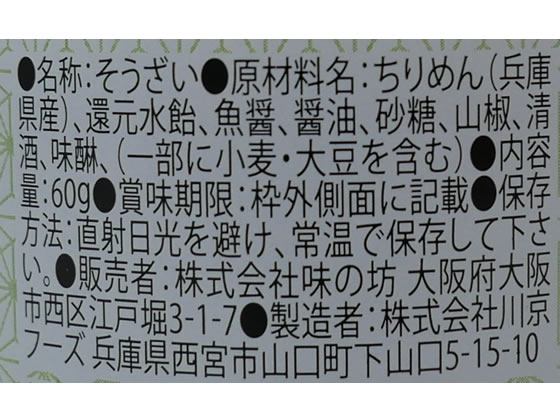 ●名称：そうざい●原材料名：ちりめん（兵庫
県産）、還元水飴、魚醤、醤油、砂糖、山椒、清
酒、味醂、（一部に小麦・大豆を含む）●内容
量：60g●賞味期限：枠外側面に記載●保存
方法：直射日光を避け、常温で保存して下さ
い。●販売者：株式会社味の坊 大阪府大阪
市西区江戸堀3-1-7●製造者：株式会社川京
フーズ 兵庫県西宮市山口町下山口5-15-10